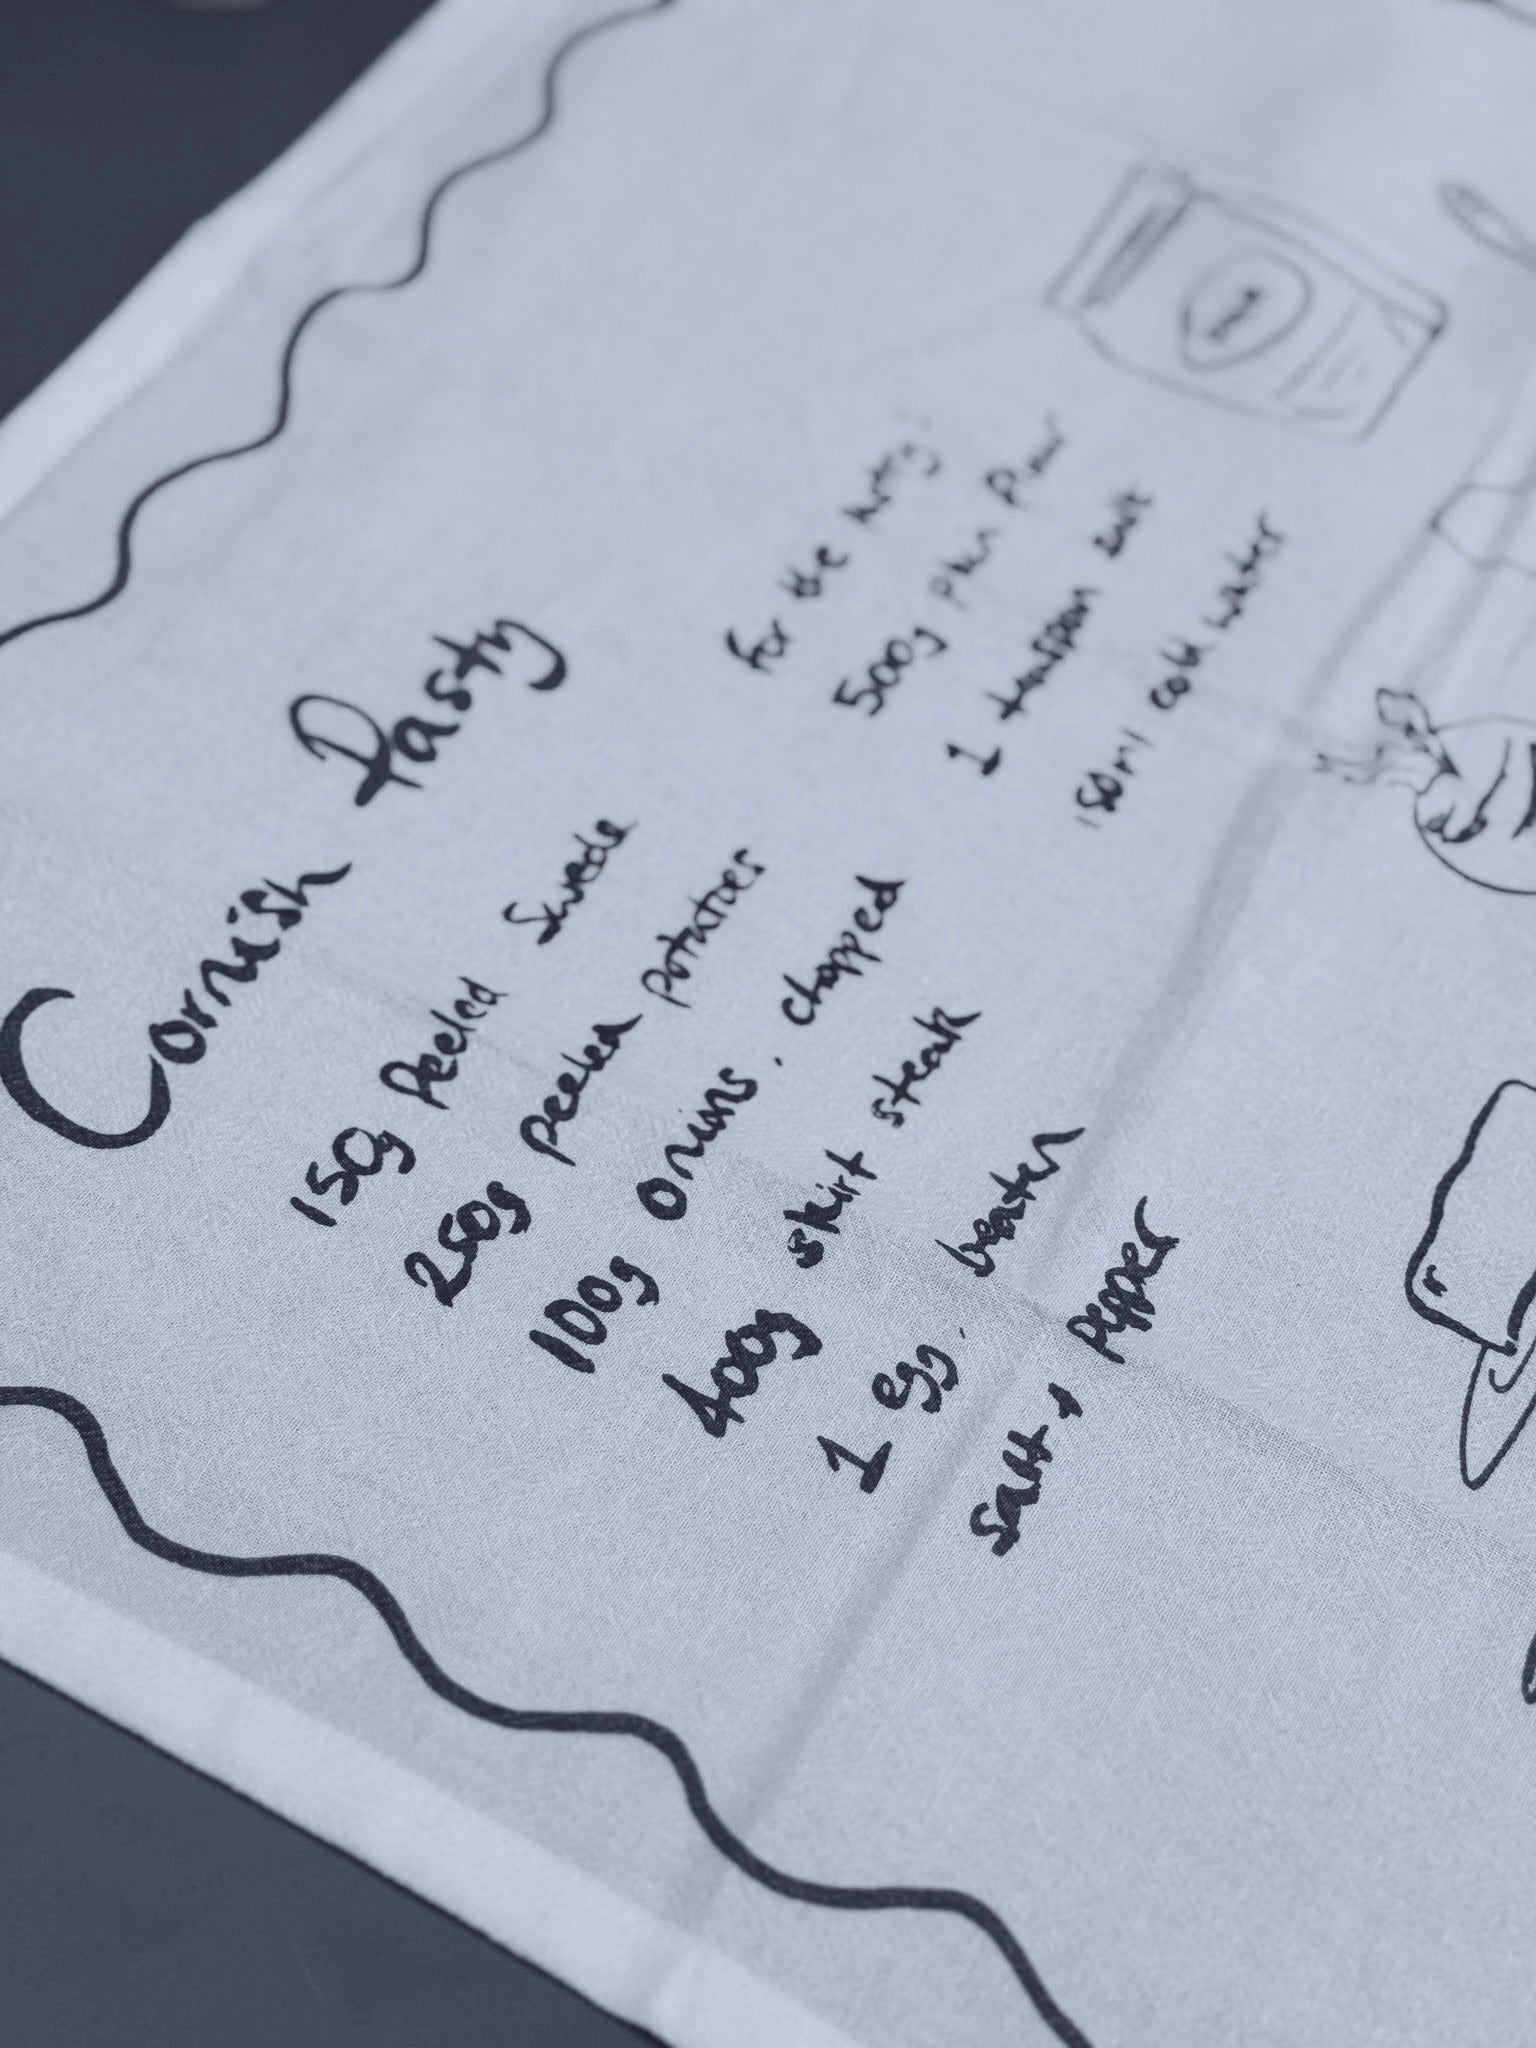 Cornish Pasty
150g peeled Swede
250g peeled potatoes
100g onions, chopped
400g skirt steak
1 egg, beaten
Salt & pepper
For the pastry:
500g plain flour
1 teaspoon salt
150ml cold water